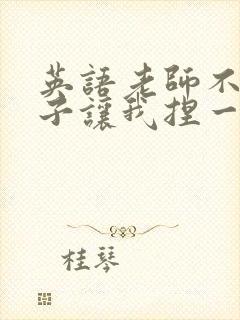 英語老師不
子讓我捏一
桂琴